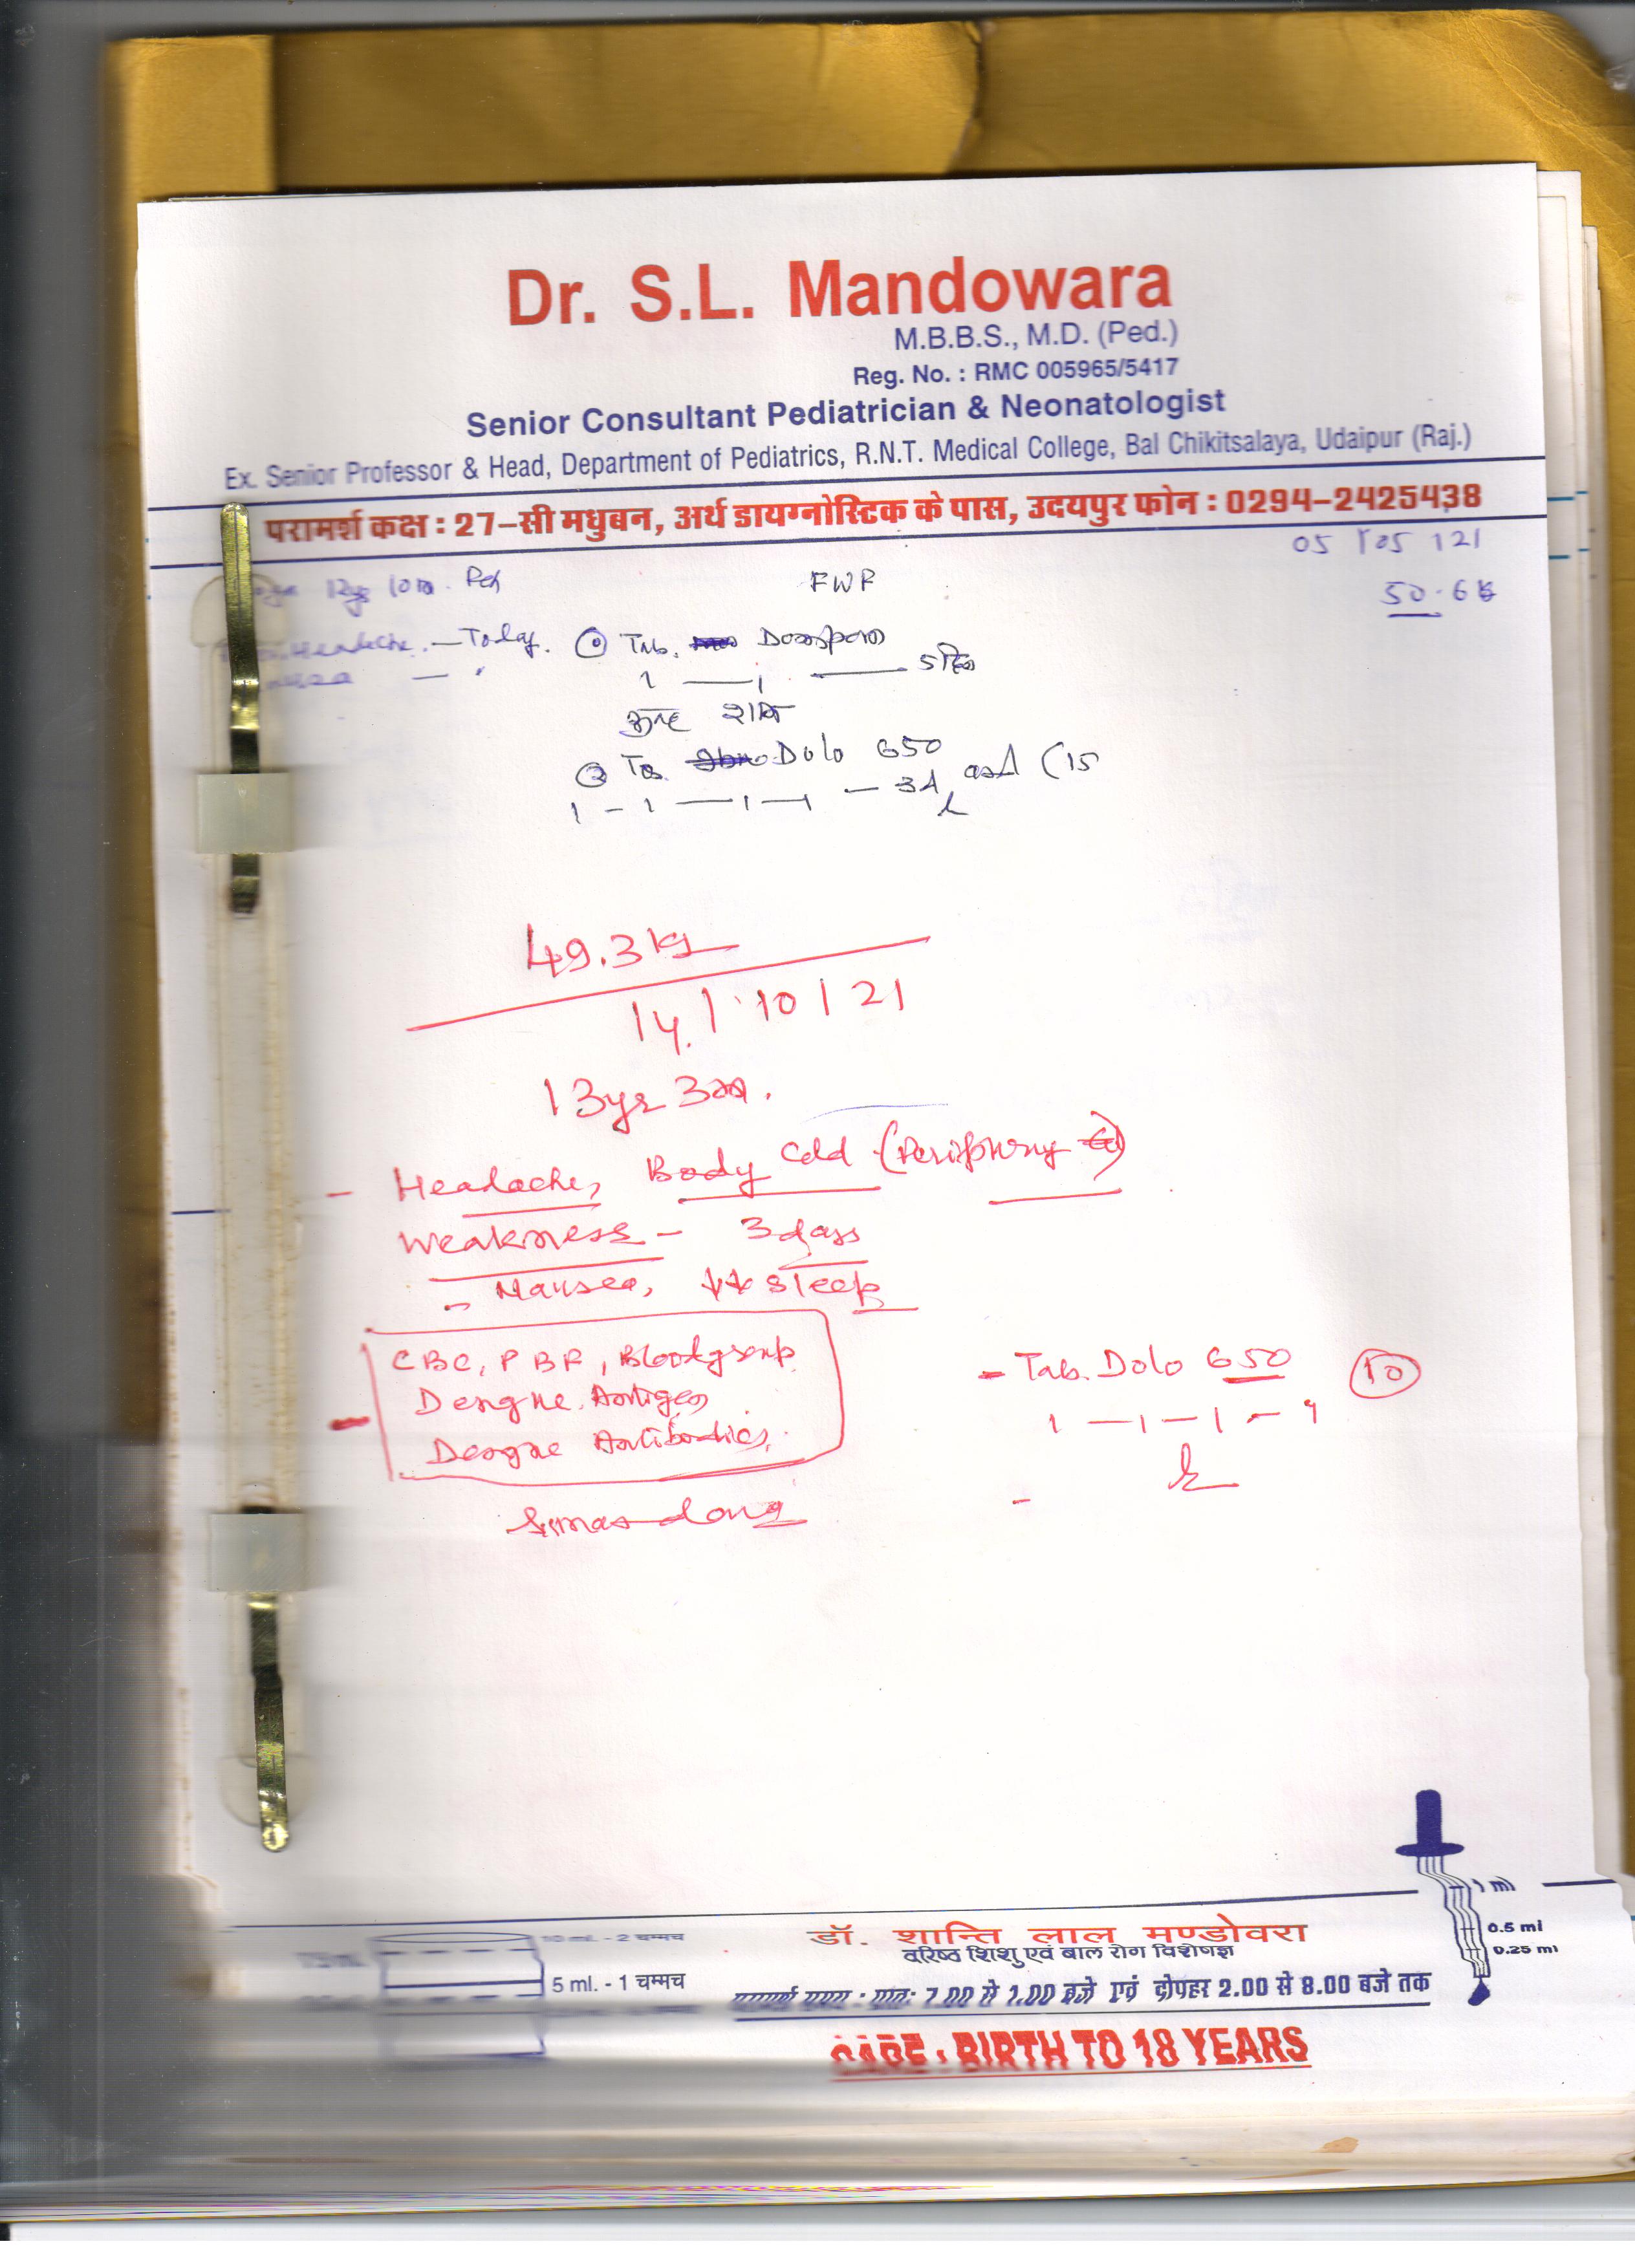 Dr. S.L. Mandowara
M.B.B.S., M.D. (Ped.)
Reg. No. : RMC 005965/5417
Senior Consultant Pediatrician & Neonatologist
Ex. Senior Professor & Head, Department of Pediatrics, R.N.T. Medical College, Bal Chikitsalaya, Udaipur (Raj.)
परामर्श कक्ष : 27-सी मधुबन, अर्थ डायग्नोस्टिक के पास, उदयपुर फोन : 0294-2425438
05 105 121
12yr 10m
FWP
50.6 k
Headache. - Today.
① Tab.
1 — 1 — 5 दिन
सुबह शाम
② Tab. Dolo 650
1 - 1 — 1 — 1 — 3d (15
49.3 kg
14 | 10 | 21
13yr 3m.
- Headache, Body Cold (Periphery
Weakness - 3 days
- Nausea, ↓↓ Sleep
CBC, PBF, Blood group
Dengue Antigen
Dengue Antibodies.
- Tab. Dolo 650 10
1 — 1 — 1 — 1
10 ml. - 2 चम्मच
5 ml. - 1 चम्मच
डॉ. शान्ति लाल मण्डोवरा
वरिष्ठ शिशु एवं बाल रोग विशेषज्ञ
परामर्श समय : प्रातः 7.00 से 1.00 बजे एवं दोपहर 2.00 से 8.00 बजे तक
CARE : BIRTH TO 18 YEARS
1 ml
0.5 ml
0.25 ml